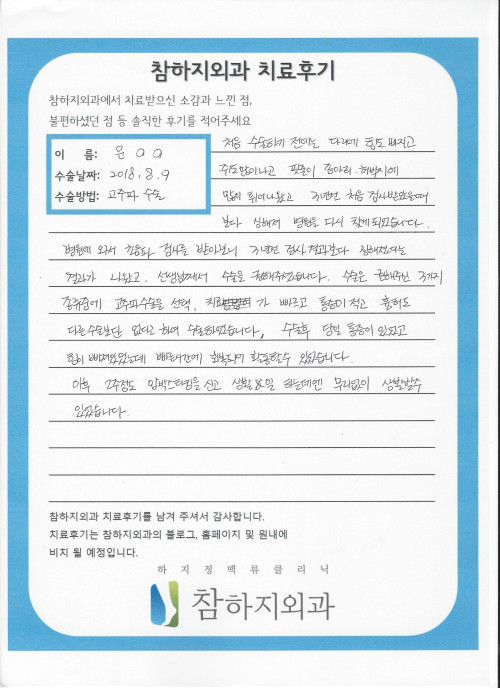 참하지외과 치료후기
참하지외과에서 치료받으신 소감과 느낀 점,
불편하셨던 점 등 솔직한 후기를 적어주세요
이 름: 문 O O
수술날짜: 2018. 8. 9
수술방법: 고주파 수술
처음 수술하기 전에는 다리에 힘도 빠지고
쥐도많이나고 핏줄이 종아리. 허벅지에
많이 튀어나왔고 3년전 처음 검사받았을때
보다 심해져 병원을 다시 찾게되었습니다.
병원에 와서 초음파 검사를 받아보니 3년전 검사결과보다 심해졌다는
결과가 나왔고. 선생님께서 수술을 권해주셨습니다. 수술은 권해주신 3가지
종류중에 고주파수술을 선택, 치료 가 빠르고 통증이 적고 흉터도
다른수술보단 없다고 하여 수술하였습니다, 수술후 당일 통증이 있었고
힘이 빠져있었는데 빠른시간에 회복되어 활동할수 있었습니다.
이후 2주정도 압박스타킹을 신고 생활&일 하는데엔 무리없이 생활할수
있었습니다.
참하지외과 치료후기를 남겨 주셔서 감사합니다.
치료후기는 참하지외과의 블로그, 홈페이지 및 원내에
비치 될 예정입니다.
하지정맥류클리닉
참하지외과